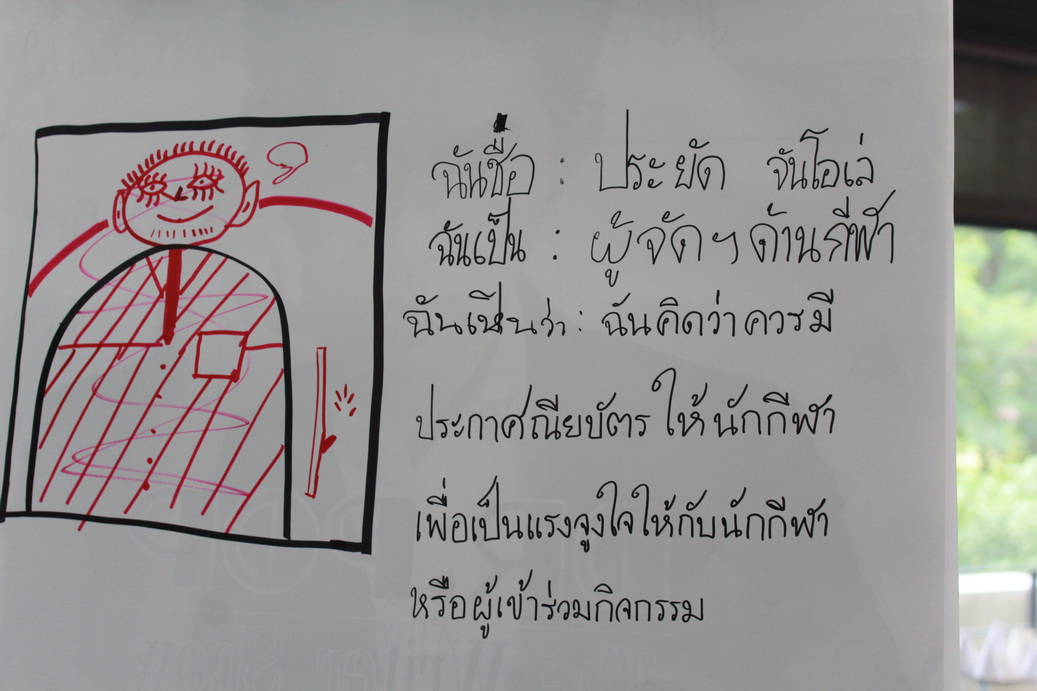 ฉันชื่อ : ประยัด จันโอเล่
ฉันเป็น : ผู้จัดฯด้านกีฬา
ฉันเห็นว่า : ฉันคิดว่าควรมี
ประกาศณียบัตรให้นักกีฬา
เพื่อเป็นแรงจูงใจให้กับนักกีฬา
หรือผู้เข้าร่วมกิจกรรม